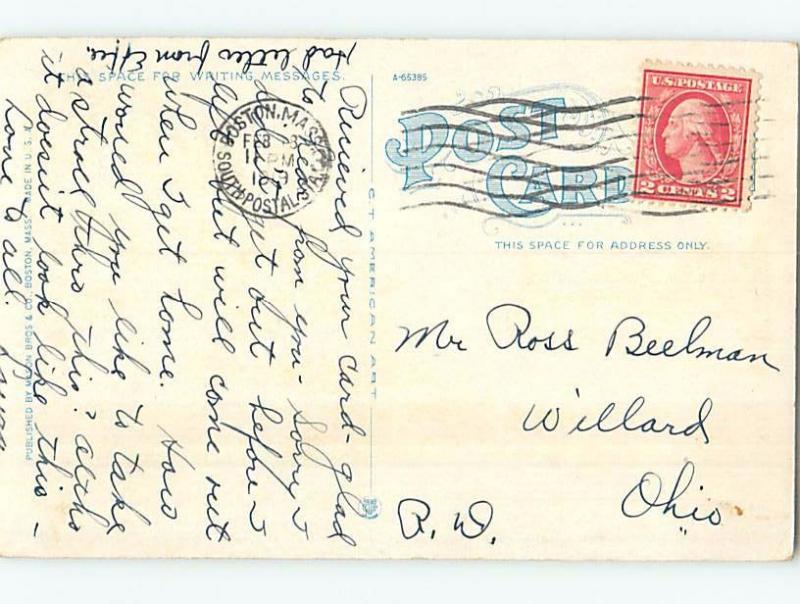 THIS SPACE FOR WRITING MESSAGES.
A-65385
POST CARD
U.S. POSTAGE
2 CENTS 2
BOSTON, MASS.
FEB
PM
SOUTH POSTAL STA.
THIS SPACE FOR ADDRESS ONLY.
C.T. AMERICAN ART
PUBLISHED BY MASON BROS & CO., BOSTON, MASS. MADE IN U.S.A.
Recieved your card - glad
to hear from you - sorry I
didn't get out before I
left but will come out
when I get home. How
would you like to take
a stroll thro this? altho
it doesn't look like this -
Love to all.
Had letter from Effie.
Mr Ross Beelman
Willard
Ohio
R. D.